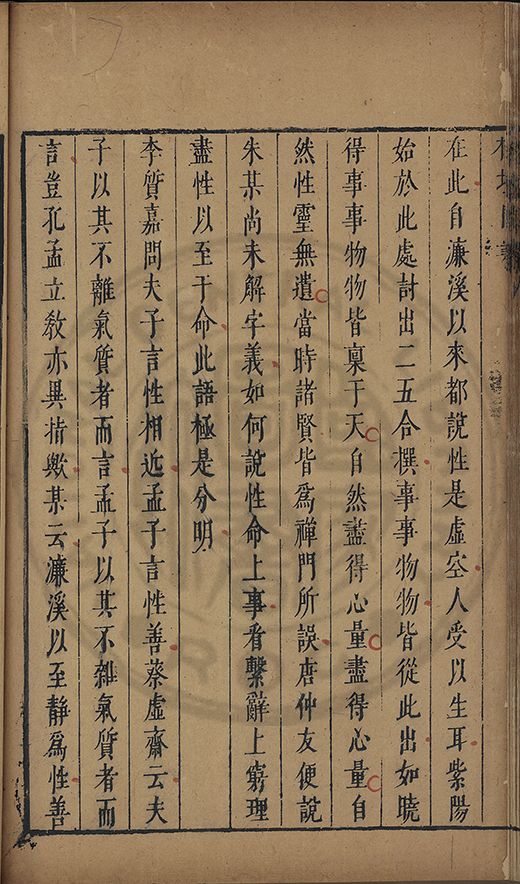 在此自濂溪以來都說性是虛空人受以生耳紫陽
始於此處討出二五合撰事事物物皆從此出如曉
得事事物物皆稟于天自然盡得心量盡得心量自
然性靈無遺當時諸賢皆爲禪門所誤唐仲友便說
朱某尚未解字義如何說性命上事看繫辭上窮理
盡性以至于命此語極是分明
李質嘉問夫子言性相近孟子言性善蔡虛齋云夫
子以其不離氣質者而言孟子以其不雜氣質者而
言豈孔孟立敎亦異指歟某云濂溪以至靜爲性善